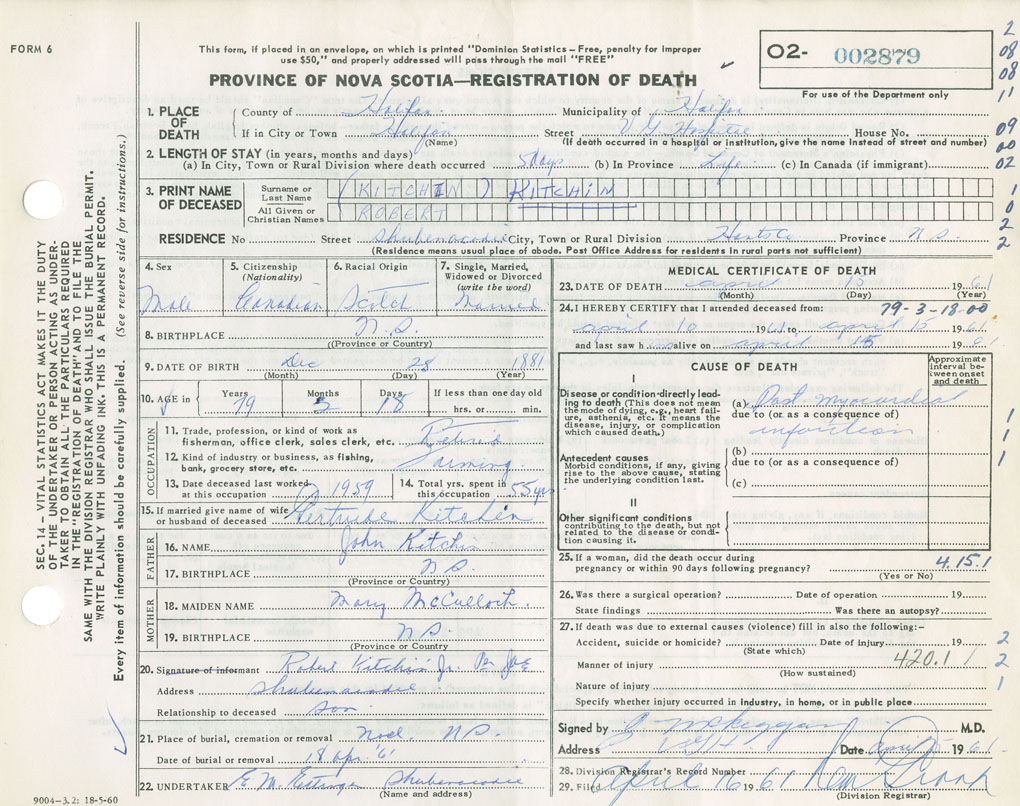 FORM 6
This form, if placed in an envelope, on which is printed "Dominion Statistics – Free, penalty for improper
use $50," and properly addressed will pass through the mail "FREE"
PROVINCE OF NOVA SCOTIA—REGISTRATION OF DEATH
02- 002879
For use of the Department only
2
08
08
11
09
00
02
1
0
2
2
1. PLACE OF DEATH
County of Halifax Municipality of Halifax
If in City or Town Halifax Street V G Hospital House No.
(Name) (If death occurred in a hospital or institution, give the name instead of street and number)
2. LENGTH OF STAY (in years, months and days)
(a) In City, Town or Rural Division where death occurred 5 Days (b) In Province Life (c) In Canada (if immigrant)
3. PRINT NAME OF DECEASED
Surname or Last Name (KITCHIN) KITCHIN
All Given or Christian Names ROBERT
RESIDENCE No Street Shubenacadie City, Town or Rural Division Province N S.
(Residence means usual place of abode. Post Office Address for residents in rural parts not sufficient)
4. Sex Male
5. Citizenship (Nationality) Canadian
6. Racial Origin Scotch
7. Single, Married, Widowed or Divorced (write the word) Married
8. BIRTHPLACE N.S.
(Province or Country)
9. DATE OF BIRTH Dec 28 1881
(Month) (Day) (Year)
10. AGE in Years 79 Months 3 Days 18 If less than one day old hrs. or min.
OCCUPATION
11. Trade, profession, or kind of work as fisherman, office clerk, sales clerk, etc. Retired
12. Kind of industry or business, as fishing, bank, grocery store, etc. Farming
13. Date deceased last worked at this occupation 1959
14. Total yrs. spent in this occupation 55 yrs
15. If married give name of wife or husband of deceased Gertrude Kitchin
FATHER
16. NAME John Kitchin
17. BIRTHPLACE N S.
(Province or Country)
MOTHER
18. MAIDEN NAME Mary McCulloch.
19. BIRTHPLACE N S.
(Province or Country
20. Signature of informant Robert Kitchin Jr. Per
Address Shubenacadie
Relationship to deceased son
21. Place of burial, cremation or removal Noel, N S.
Date of burial or removal 18 Apr. '61
22. UNDERTAKER E. M. Ettinger Shubenacadie
(Name and address)
9004—3.2: 18-5-60
MEDICAL CERTIFICATE OF DEATH
23. DATE OF DEATH April 15 1961
(Month) (Day) (Year)
24. I HEREBY CERTIFY that I attended deceased from: 79-3-18-00
April 10 1961 to April 15 1961
and last saw h alive on April 15 1961
CAUSE OF DEATH
Approximate interval between onset and death
I
Disease or condition directly leading to death (This does not mean the mode of dying, e.g., heart failure, asthenia, etc. It means the disease, injury, or complication which caused death.)
(a) Post myocardial infarction
due to (or as a consequence of)
Antecedent causes
Morbid conditions, if any, giving rise to the above cause, stating the underlying condition last.
(b)
due to (or as a consequence of)
(c)
II
Other significant conditions contributing to the death, but not related to the disease or condition causing it.
1
1
1
25. If a woman, did the death occur during pregnancy or within 90 days following pregnancy? 4.15.1
(Yes or No)
26. Was there a surgical operation? Date of operation 19
State findings Was there an autopsy?
27. If death was due to external causes (violence) fill in also the following:—
Accident, suicide or homicide? Date of injury 19
(State which)
Manner of injury 420.1
(How sustained)
Nature of injury
Specify whether injury occurred in industry, in home, or in public place
2
2
1
Signed by M.D.
Address V G H Date April 15 1961.
28. Division Registrar's Record Number
29. Filed April 16 1961
(Division Registrar)
SEC. 14 – VITAL STATISTICS ACT MAKES IT THE DUTY
OF THE UNDERTAKER OR PERSON ACTING AS UNDER-
TAKER TO OBTAIN ALL THE PARTICULARS REQUIRED
IN THE "REGISTRATION OF DEATH" AND TO FILE THE
SAME WITH THE DIVISION REGISTRAR WHO SHALL ISSUE THE BURIAL PERMIT.
WRITE PLAINLY WITH UNFADING INK. THIS IS A PERMANENT RECORD.
Every item of information should be carefully supplied. (See reverse side for instructions.)